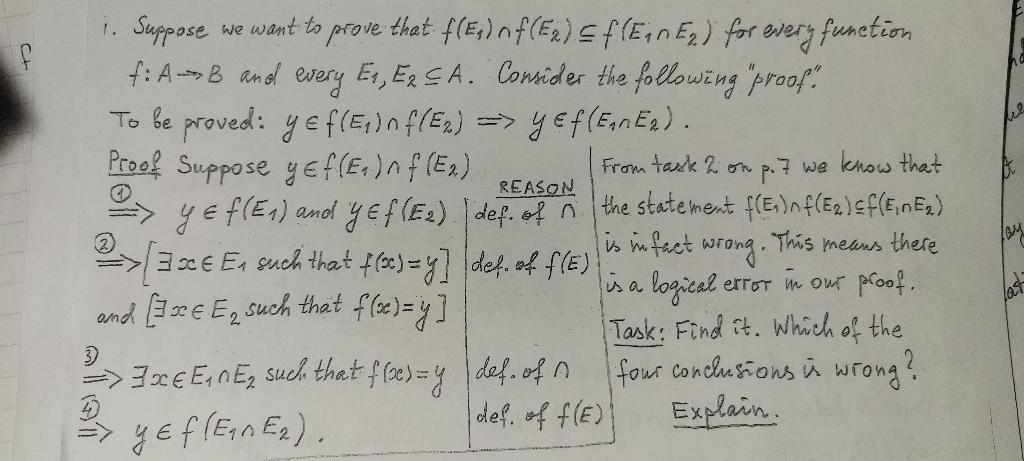 f
i. Suppose we want to prove that f(E₁)∩f(E₂)⊆f(E₁∩E₂) for every function
f: A→B and every E₁,E₂⊆A. Consider the following "proof".
To be proved: y∈f(E₁)∩f(E₂) ⟹ y∈f(E₁∩E₂).
Proof Suppose y∈f(E₁)∩f(E₂)
REASON
① ⟹ y∈f(E₁) and y∈f(E₂) def. of ∩
② ⟹ [∃x∈E₁ such that f(x)=y] def. of f(E)
and [∃x∈E₂ such that f(x)=y]
③ ⟹ ∃x∈E₁∩E₂ such that f(x)=y def. of ∩
④ ⟹ y∈f(E₁∩E₂). def. of f(E)
From task 2 on p.7 we know that
the statement f(E₁)∩f(E₂)⊆f(E₁∩E₂)
is in fact wrong. This means there
is a logical error in our proof.
Task: Find it. Which of the
four conclusions is wrong?
Explain.